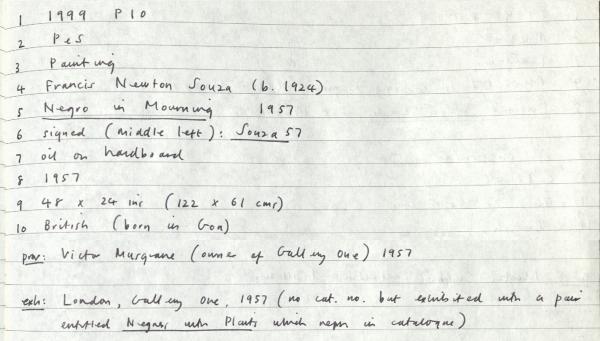 1 1999 P10
2 PeS
3 Painting
4 Francis Newton Souza (b. 1924)
5 Negro in Mourning 1957
6 signed (middle left): Souza 57
7 oil on hardboard
8 1957
9 48 x 24 ins (122 x 61 cms)
10 British (born in Goa)
prov: Victor Musgrave (owner of Gallery One) 1957
exh: London, Gallery One, 1957 (no cat. no. but exhibited with a pair
entitled with which in catalogue)